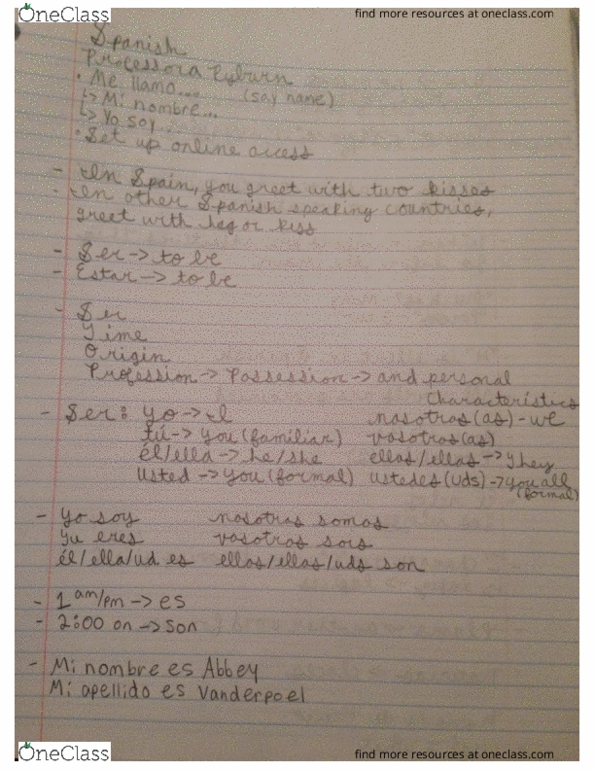 OneClass
find more resources at oneclass.com
Spanish
Professora Ryburn
· Me llamo... (say name)
↳ Mi nombre...
↳ Yo soy...
· Set up online access
- In Spain, you greet with two kisses
- In other Spanish speaking countries,
greet with hug or kiss
- Ser -> to be
- Estar -> to be
- Ser
Time
Origin
Profession -> Possession -> and personal
characteristics
- Ser: yo -> I nosotros(as) - we
tú -> you (familiar) vosotros(as)
él/ella -> he/she ellos/ellas -> they
usted -> you (formal) ustedes (uds) -> you all
(formal)
- Yo soy nosotros somos
Tu eres vosotros sois
él/ella/ud es ellos/ellas/uds son
- 1 am/pm -> es
- 2:00 on -> son
- Mi nombre es Abbey
Mi apellido es Vanderpoel
OneClass
find more resources at oneclass.com